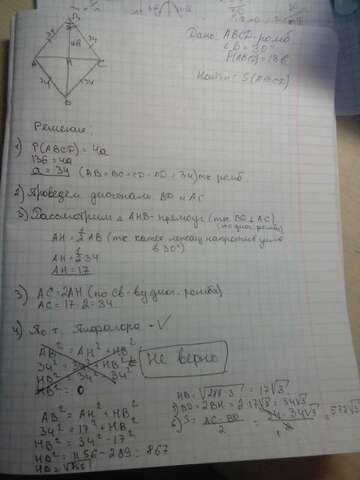 B
34
34
A
H
C
34
34
D
Дано: ABCD-ромб
P(ABCD)=136
Найти: S(ABCD)
Решение:
1) P(ABCD) = 4a
136 = 4a
a = 34 (AB=BC=CD=AD=34) т к ромб.
2) Проведём диагонали BD и AC
3) Рассмотрим △ AHB- прямоуг (тк BD⊥AC)
AH = ½ AB (тк катет лежащ напротив угла
в 30°)
AH = ½ 34
AH = 17
3) AC = 2AH (по св-ву диаг. ромба)
AC = 17·2 = 34
4) По т. Пифагора - √
AB² = AH² + HB²
HB² = 34² - 34²
HB² = 0
Не верно
AB² = AH² + HB²
34² = 17² + HB²
HB² = 34² - 17²
HB² = 1156 - 289 = 867
HB = √289·3 = 17√3
5) BD = 2BH = 2·17√3 = 34√3
6) S = AC·BD / 2 = 34·34√3 / 2 = 578√3